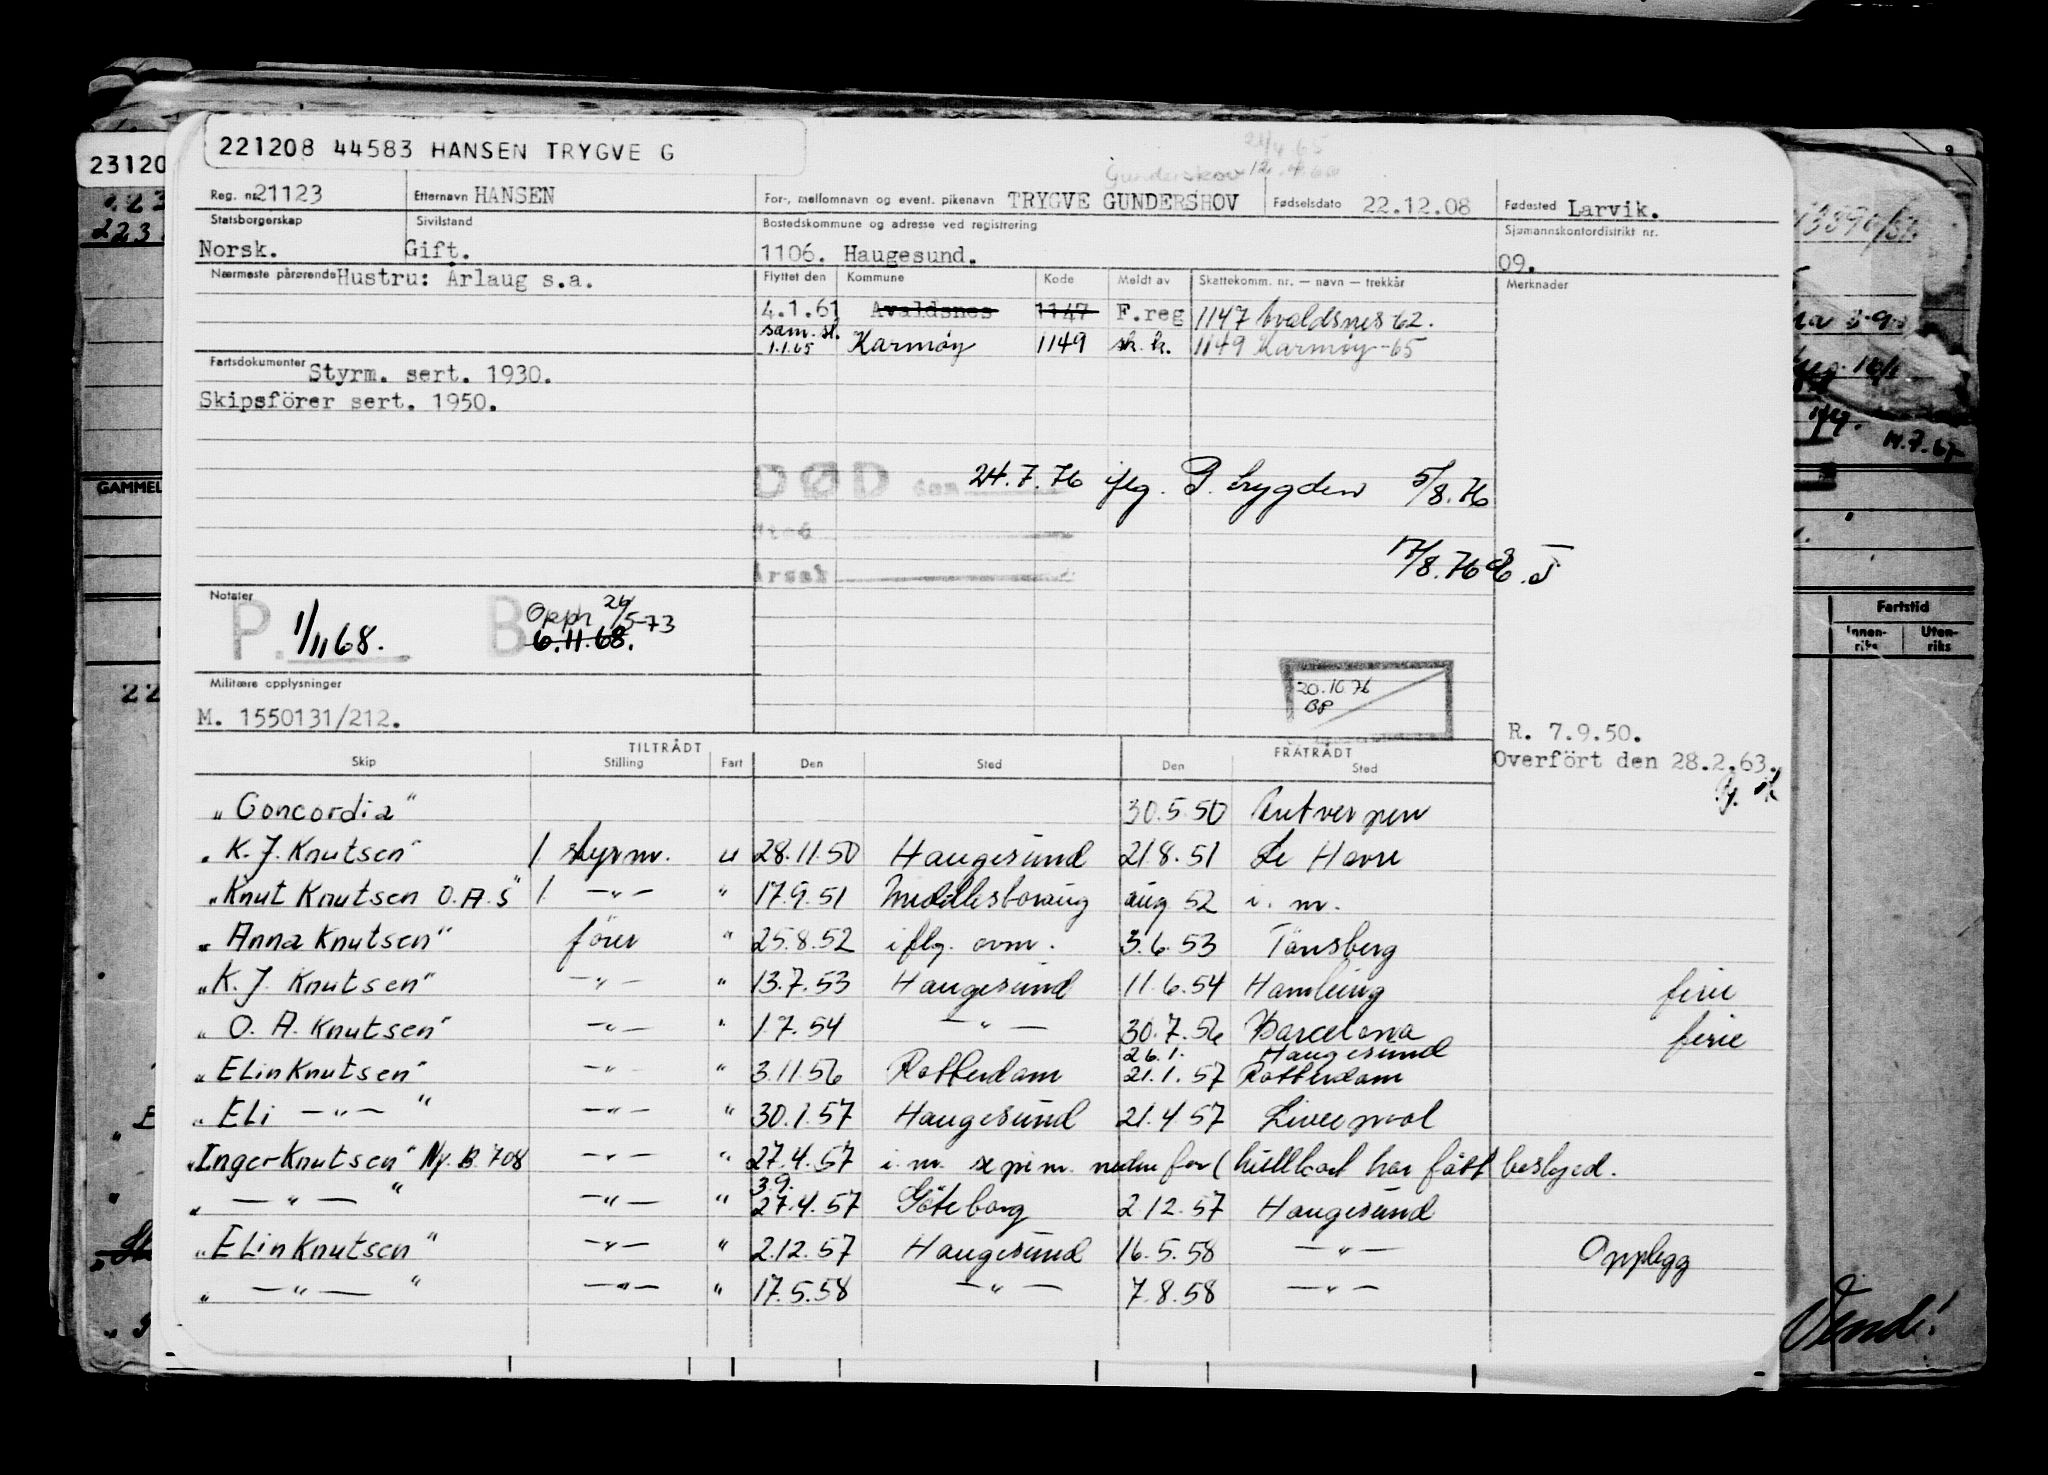 221208 44583 HANSEN TRYGVE G
Reg. nr. 21123 Etternavn HANSEN For-, mellomnavn og event. pikenavn TRYGVE GUNDERSHOV Fødselsdato 22.12.08 Fødested Larvik.
Statsborgerskap Sivilstand Bostedskommune og adresse ved registrering Sjømannskontordistrikt nr.
Norsk. Gift. 1106. Haugesund. 09.
Nærmeste pårørende Hustru: Årlaug s.a. Flyttet den Kommune Kode Meldt av Skattekomm. nr. — navn — trekkår Merknader
4.1.61 Avaldsnes 1147 F.reg 1147 Avaldsnes 62.
sam. st.
1.1.65 Karmøy 1149 sk. k. 1149 Karmøy-65
Fartsdokumenter Styrm. sert. 1930.
Skipsförer sert. 1950.
DØD den 24.7.76 iflg. P. trygden 5/8.76
Sted
Årsak
17/8.76
Notater
P. 1/11 68. B Opph 26/5-73
6.11.68.
20.10.76
BP
Militære opplysninger
M. 1550131/212.
R. 7.9.50.
Overfört den 28.2.63.
TILTRÅDT FRATRÅDT
Skip Stilling Fart Den Sted Den Sted
"Concordia" 30.5.50 Antverpen
"K. J. Knutsen" 1 styrm. u 28.11.50 Haugesund 21.8.51 Le Havre
"Knut Knutsen O.A.S" 1 —"— " 17.9.51 Middlesboroug aug 52 i. m.
"Anna Knutsen" förer " 25.8.52 iflg. ovm. 3.6.53 Tönsberg
"K. J. Knutsen" —"— " 13.7.53 Haugesund 11.6.54 Hamburg ferie
"O. A. Knutsen" —"— " 1 7.54 —"— 30.7.56 Barcelona ferie
26.1. Haugesund
"Elin Knutsen" —"— " 3.11.56 Rotterdam 21.1.57 Rotterdam
"Eli —"— " —"— " 30.1.57 Haugesund 21.4.57 Liverpool
"Inger Knutsen" Ny. B. 708 —"— " 27.4.57 i. m. se pr m. nedenfor ( hullkort har fått beskjed.
3.9.
" —"— " —"— " 27.4.57 Göteborg 2.12.57 Haugesund
"Elin Knutsen" —"— " 2.12.57 Haugesund 16.5.58 —"— Opplegg
" —"— " —"— " 17.5.58 —"— 7.8.58 —"—
23120
GAMMEL
Fartstid
Innen-riks Uten-riks
14.7.67
Vend!